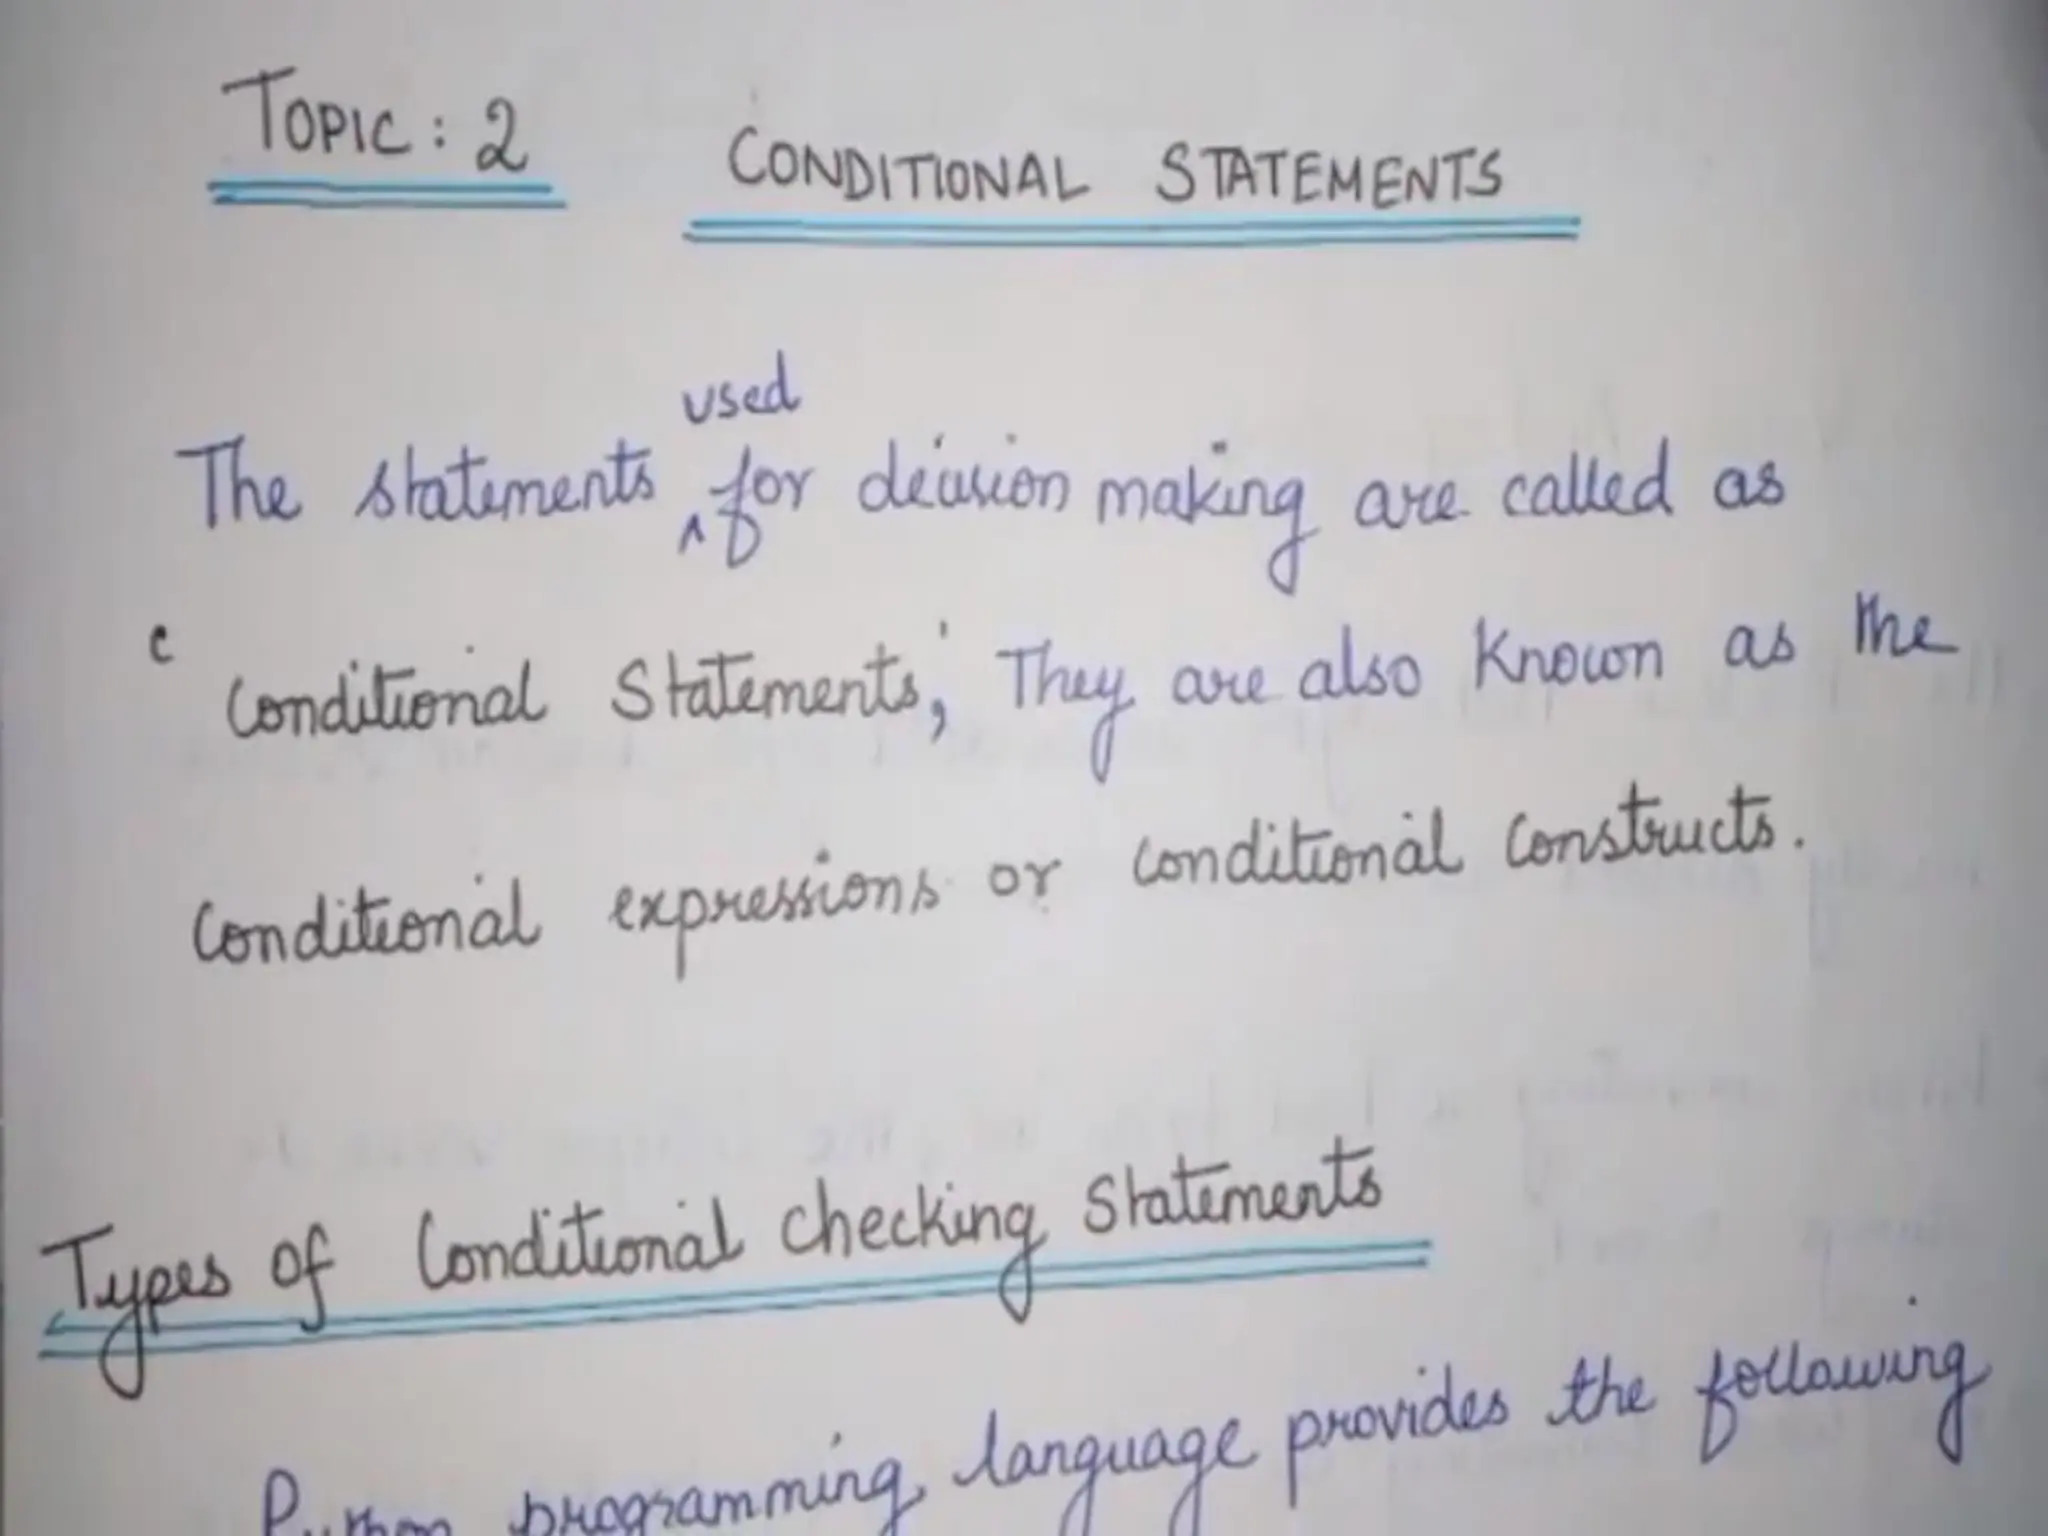 TOPIC: 2 CONDITIONAL STATEMENTS
The statements used for decision making are called as
‘Conditional Statements,' They are also known as the
Conditional expressions or conditional constructs.
Types of Conditional checking Statements
Python programming language provides the following